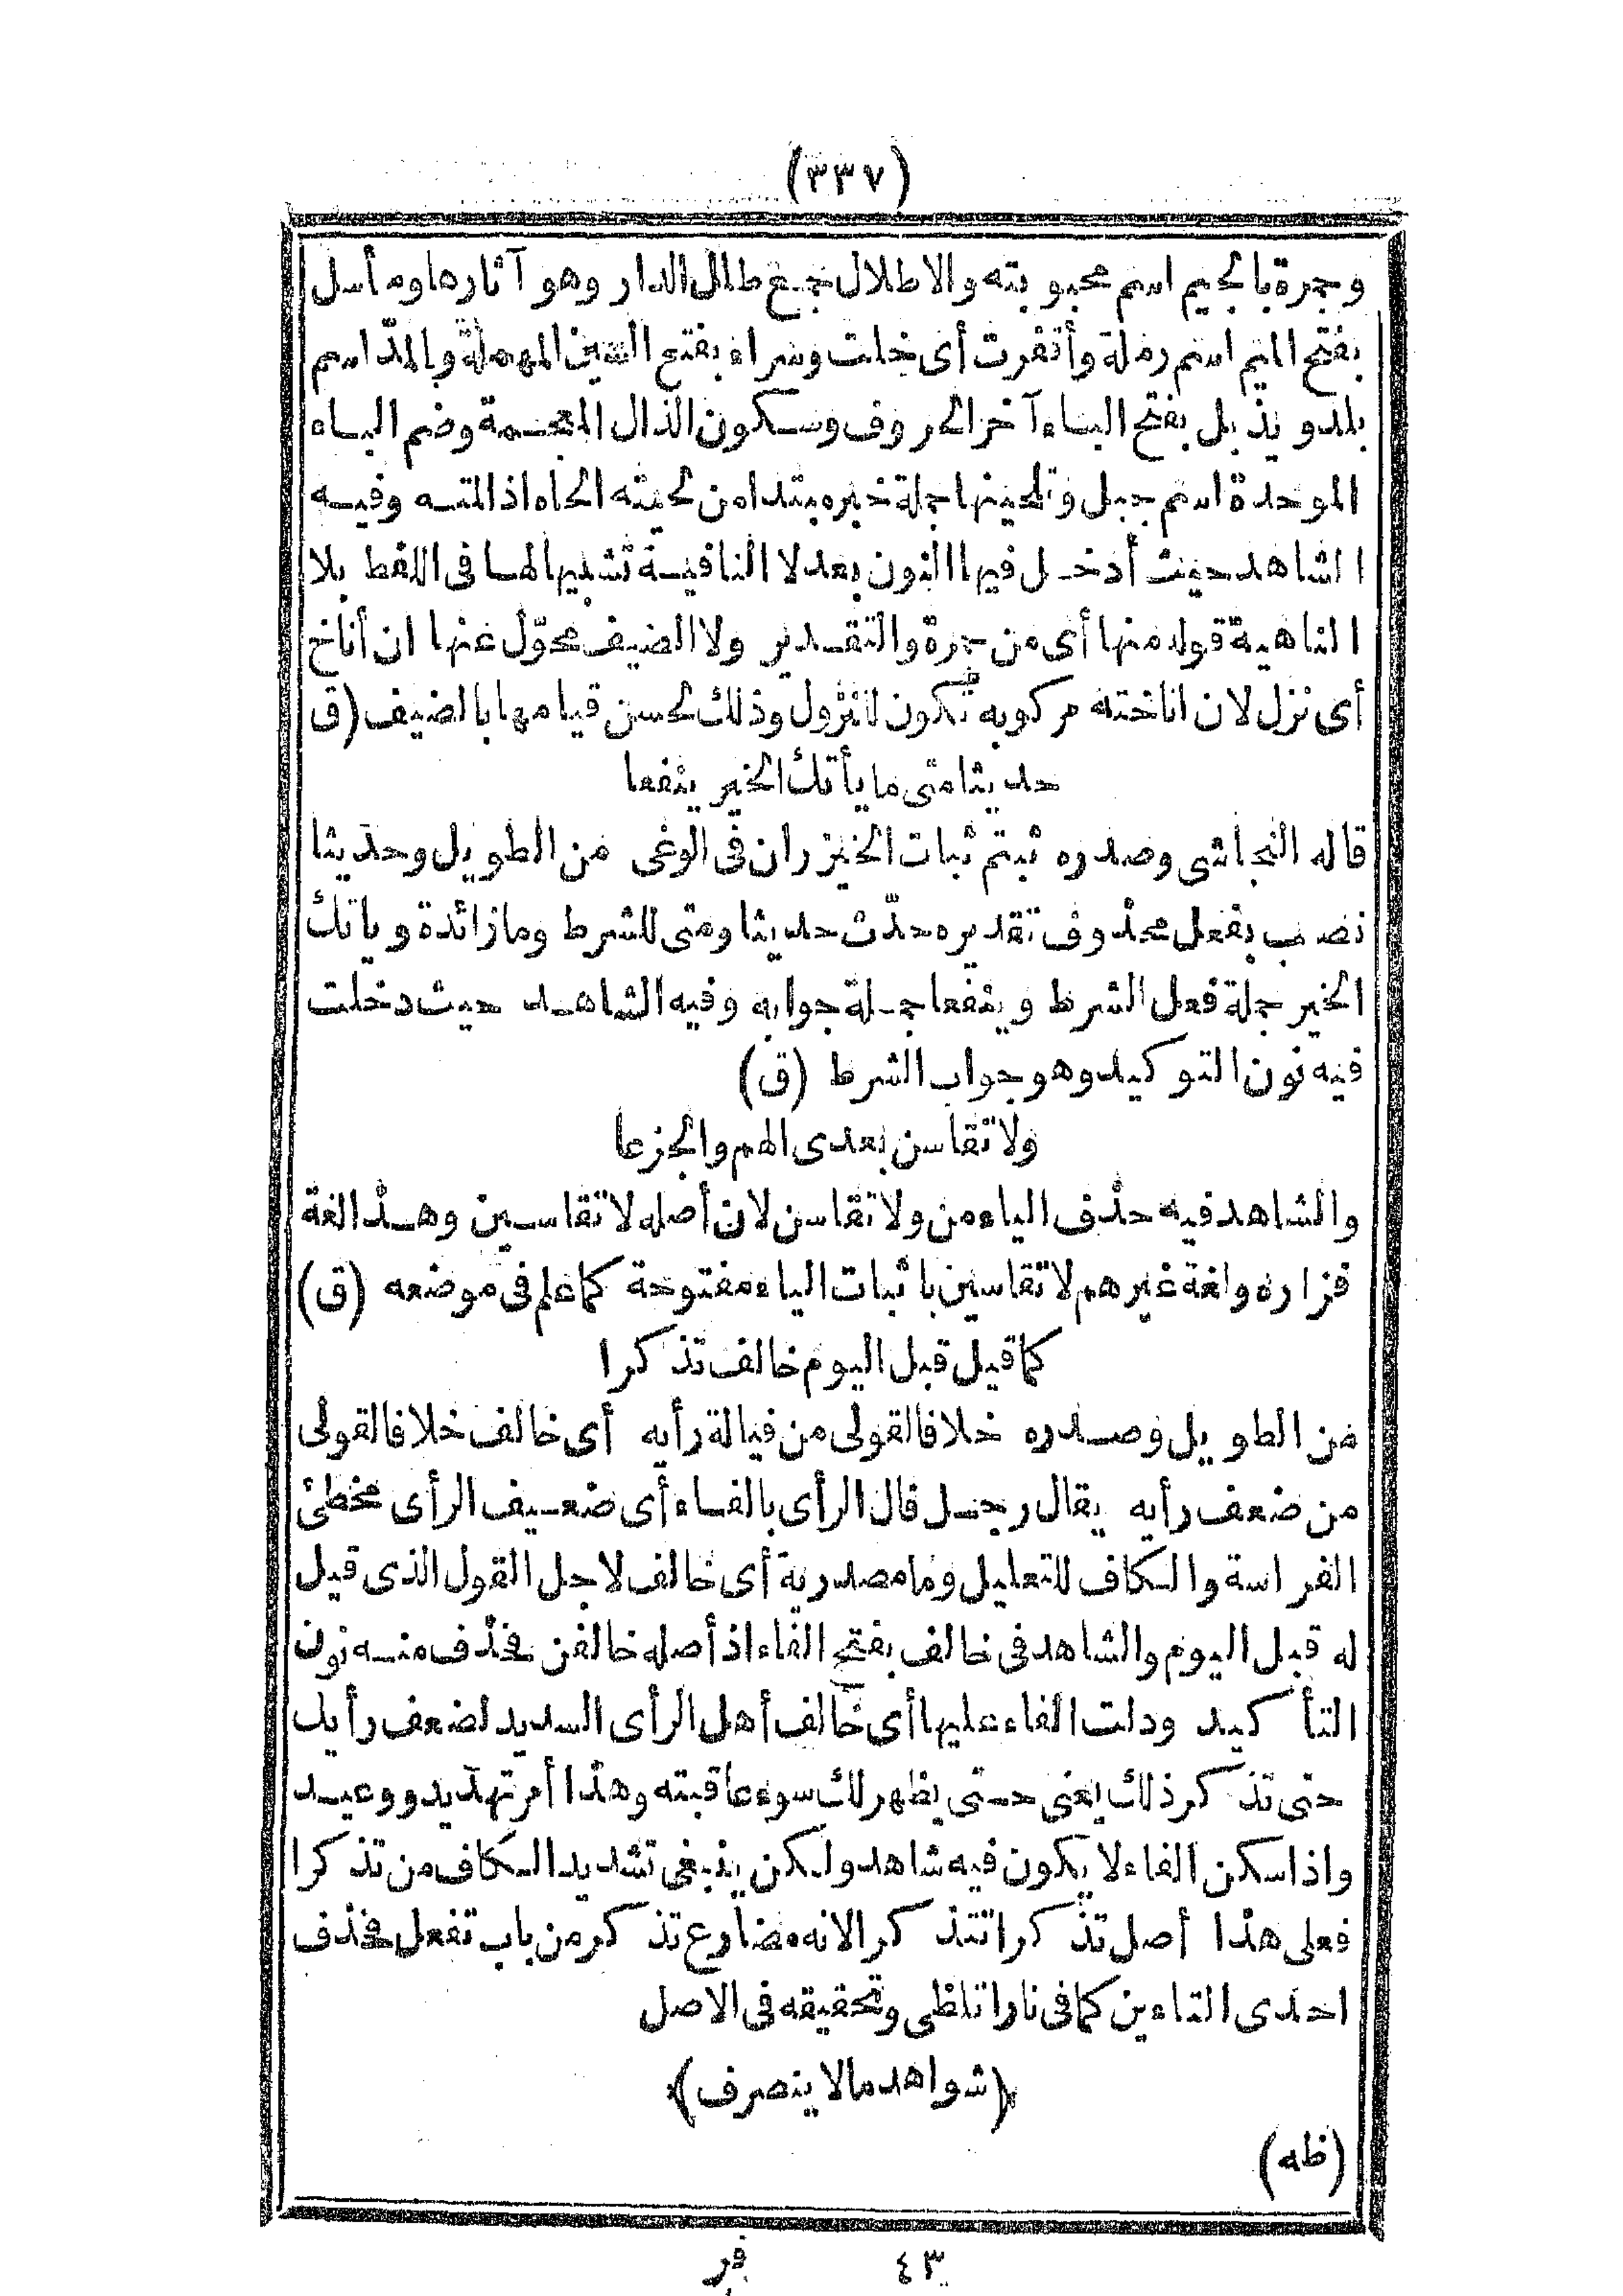 (٣٣٧)
وجمرة بالجيم اسم محبوبته والاطلال جمع طلل الدار وهو آثارها ومأسل
بفتح الميم اسم رملة وأقفرت أى خلت وسراء بفتح السين المهملة وبالمدّ اسم
بلد ويذبل بفتح الياء آخر الحروف وسكون الذال المعجمة وضم الباء
الموحدة اسم جبل وتلحينها جملة خبر مبتدا من لحيته الحاه اذا لمته وفيه
الشاهد حيث أدخل فيها النون بعد لا النافية تشبيها لها فى اللفظ بلا
الناهية قوله منها أى من جمرة والتقدير ولا الضيف محوّل عنها ان أناخ
أى نزل لان اناخته مركوبه تكون للنزول وذلك لحسن قيامها بالضيف (ق
حديثا متى ما يأتك الخير ينفعا
قاله النجاشى وصدره ثبتم ثبات الخيزران فى الوغى من الطويل وحديثا
نصب بفعل محذوف تقديره حدّث حديثا ومتى للشرط وما زائدة ويأتك
الخير جملة فعل الشرط وينفعا جملة جوابه وفيه الشاهد حيث دخلت
فيه نون التوكيد وهو جواب الشرط (ق)
ولا تقاسن بعدى الهم والجزعا
والشاهد فيه حذف الياء من ولا تقاسن لان أصله لا تقاسين وهذا لغة
فزاره ولغة غيرهم لا تقاسين باثبات الياء مفتوحة كما علم فى موضعه (ق)
كما قيل قبل اليوم خالف تذكرا
من الطويل وصدره خلافا لقولى من فيالة رأيه أى خالف خلافا لقولى
من ضعف رأيه يقال رجل فال الرأى بالفاء أى ضعيف الرأى مخطئ
الفراسة والكاف للتعليل وما مصدرية أى خالف لاجل القول الذى قيل
له قبل اليوم والشاهد فى خالف بفتح الفاء اذ أصله خالفن فحذف منه نون
التأكيد ودلت الفاء عليها أى خالف أهل الرأى السديد لضعف رأيك
حتى تذكر ذلك يعنى حتى يظهر لك سوء عاقبته وهذا أمر تهديد ووعيد
واذا سكن الفاء لا يكون فيه شاهد ولكن ينبغى تشديد الكاف من تذكرا
فعلى هذا أصل تذكرا تتذكرا لانه مضارع تذكر من باب تفعل فحذف
احدى التاءين كما فى نارا تلظى وتحقيقه فى الاصل
﴿شواهد ما لا ينصرف﴾
(ظه)
٤٣ فر